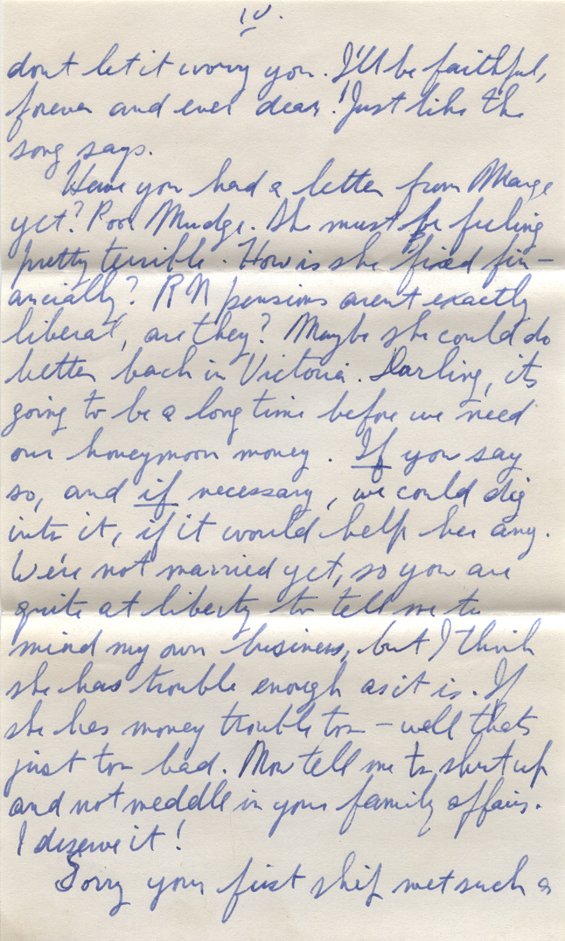 IV.
dont let it worry you. I'll be faithful,
forever and ever dear! Just like the
song says.
Have you had a letter from Marge
yet? Poor Mudge. She must be feeling
pretty terrible. How is she fixed fin-
ancially? RN pensions arent exactly
liberal, are they? Maybe she could do
better back in Victoria. Darling, its
going to be a long time before we need
our honeymoon money. If you say
so, and if necessary, we could dig
into it, if it would help her any.
We're not married yet, so you are
quite at liberty to tell me to
mind my own business, but I think
she has trouble enough as it is. If
she has money trouble too - well thats
just too bad. Now tell me to shut up
and not meddle in your family affairs.
I deserve it!
Sorry your first ship met such a